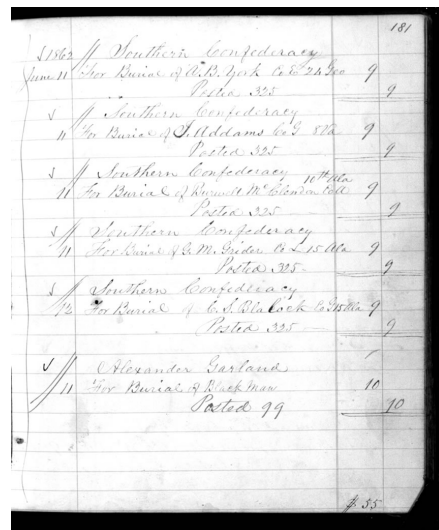 181
1862 // Southern Confederacy
June 11 For Burial of A. B. York Co E 24 Geo 9
Posted 325 9
// Southern Confederacy
11 For Burial of J. Addams Co G 8 Va 9
Posted 325 9
// Southern Confederacy 10th Ala
11 For Burial of Burwell McClendon Co A 9
Posted 325 9
// Southern Confederacy
11 For Burial of G. M. Grider Co L 15 Ala 9
Posted 325 9
// Southern Confederacy
12 For Burial of C. S. Blalock Co G 15 Ala 9
Posted 325 9
// Alexander Garland
11 For Burial of Black Man 10
Posted 99 10
$ 55